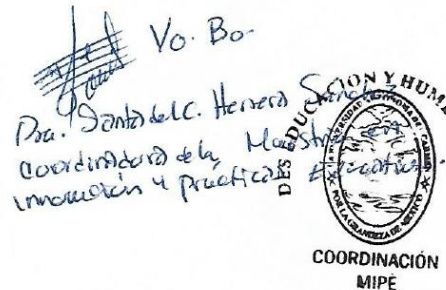 Vo. Bo.
Dra. Santa del C. Herrera Sánchez
Coordinadora de la Maestría en
innovación y prácticas Educativas
DES EDUCACIÓN Y HUM
UNIVERSIDAD AUTÓNOMA DEL CARMEN
POR LA GRANDEZA DE MÉXICO
COORDINACIÓN
MIPE